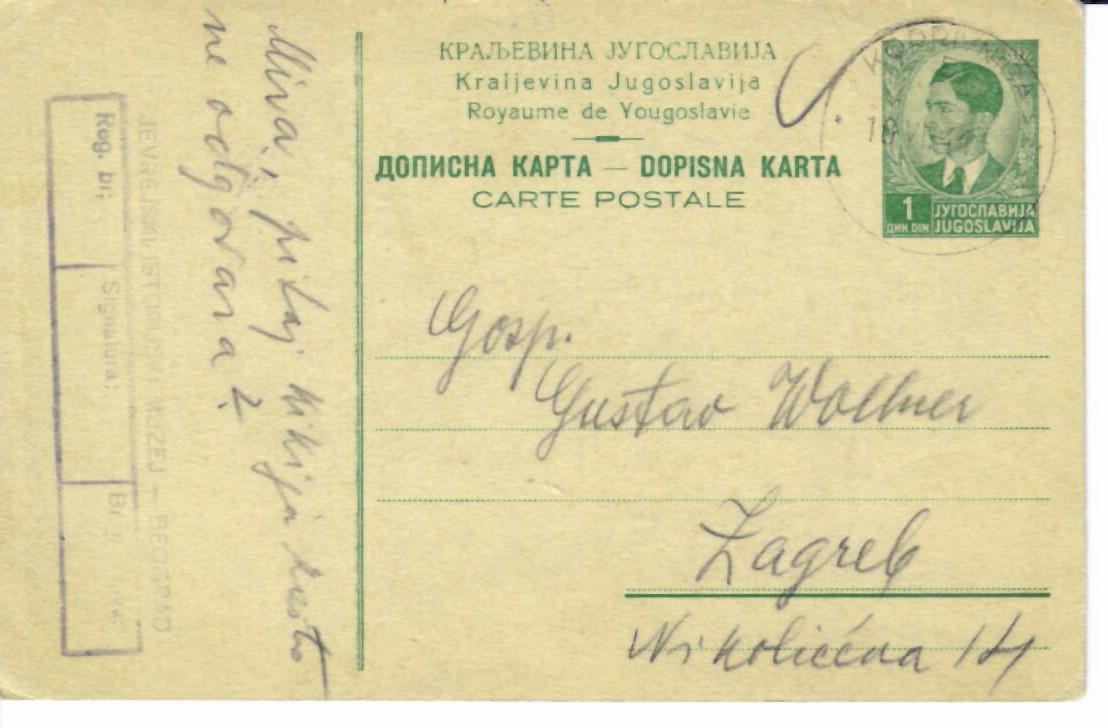 КРАЉЕВИНА ЈУГОСЛАВИЈА
Kraljevina Jugoslavija
Royaume de Yougoslavie
ДОПИСНА КАРТА — DOPISNA KARTA
CARTE POSTALE
1
ДИН. DIN
ЈУГОСЛАВИЈА
JUGOSLAVIJA
18
Gosp.
Gustav Wollner
Zagreb
Nikolićeva
pitaj zašto
ne odgovara?
JEVREJSKI ISTORIJSKI MUZEJ — BEOGRAD
Reg. br:
Signatura: